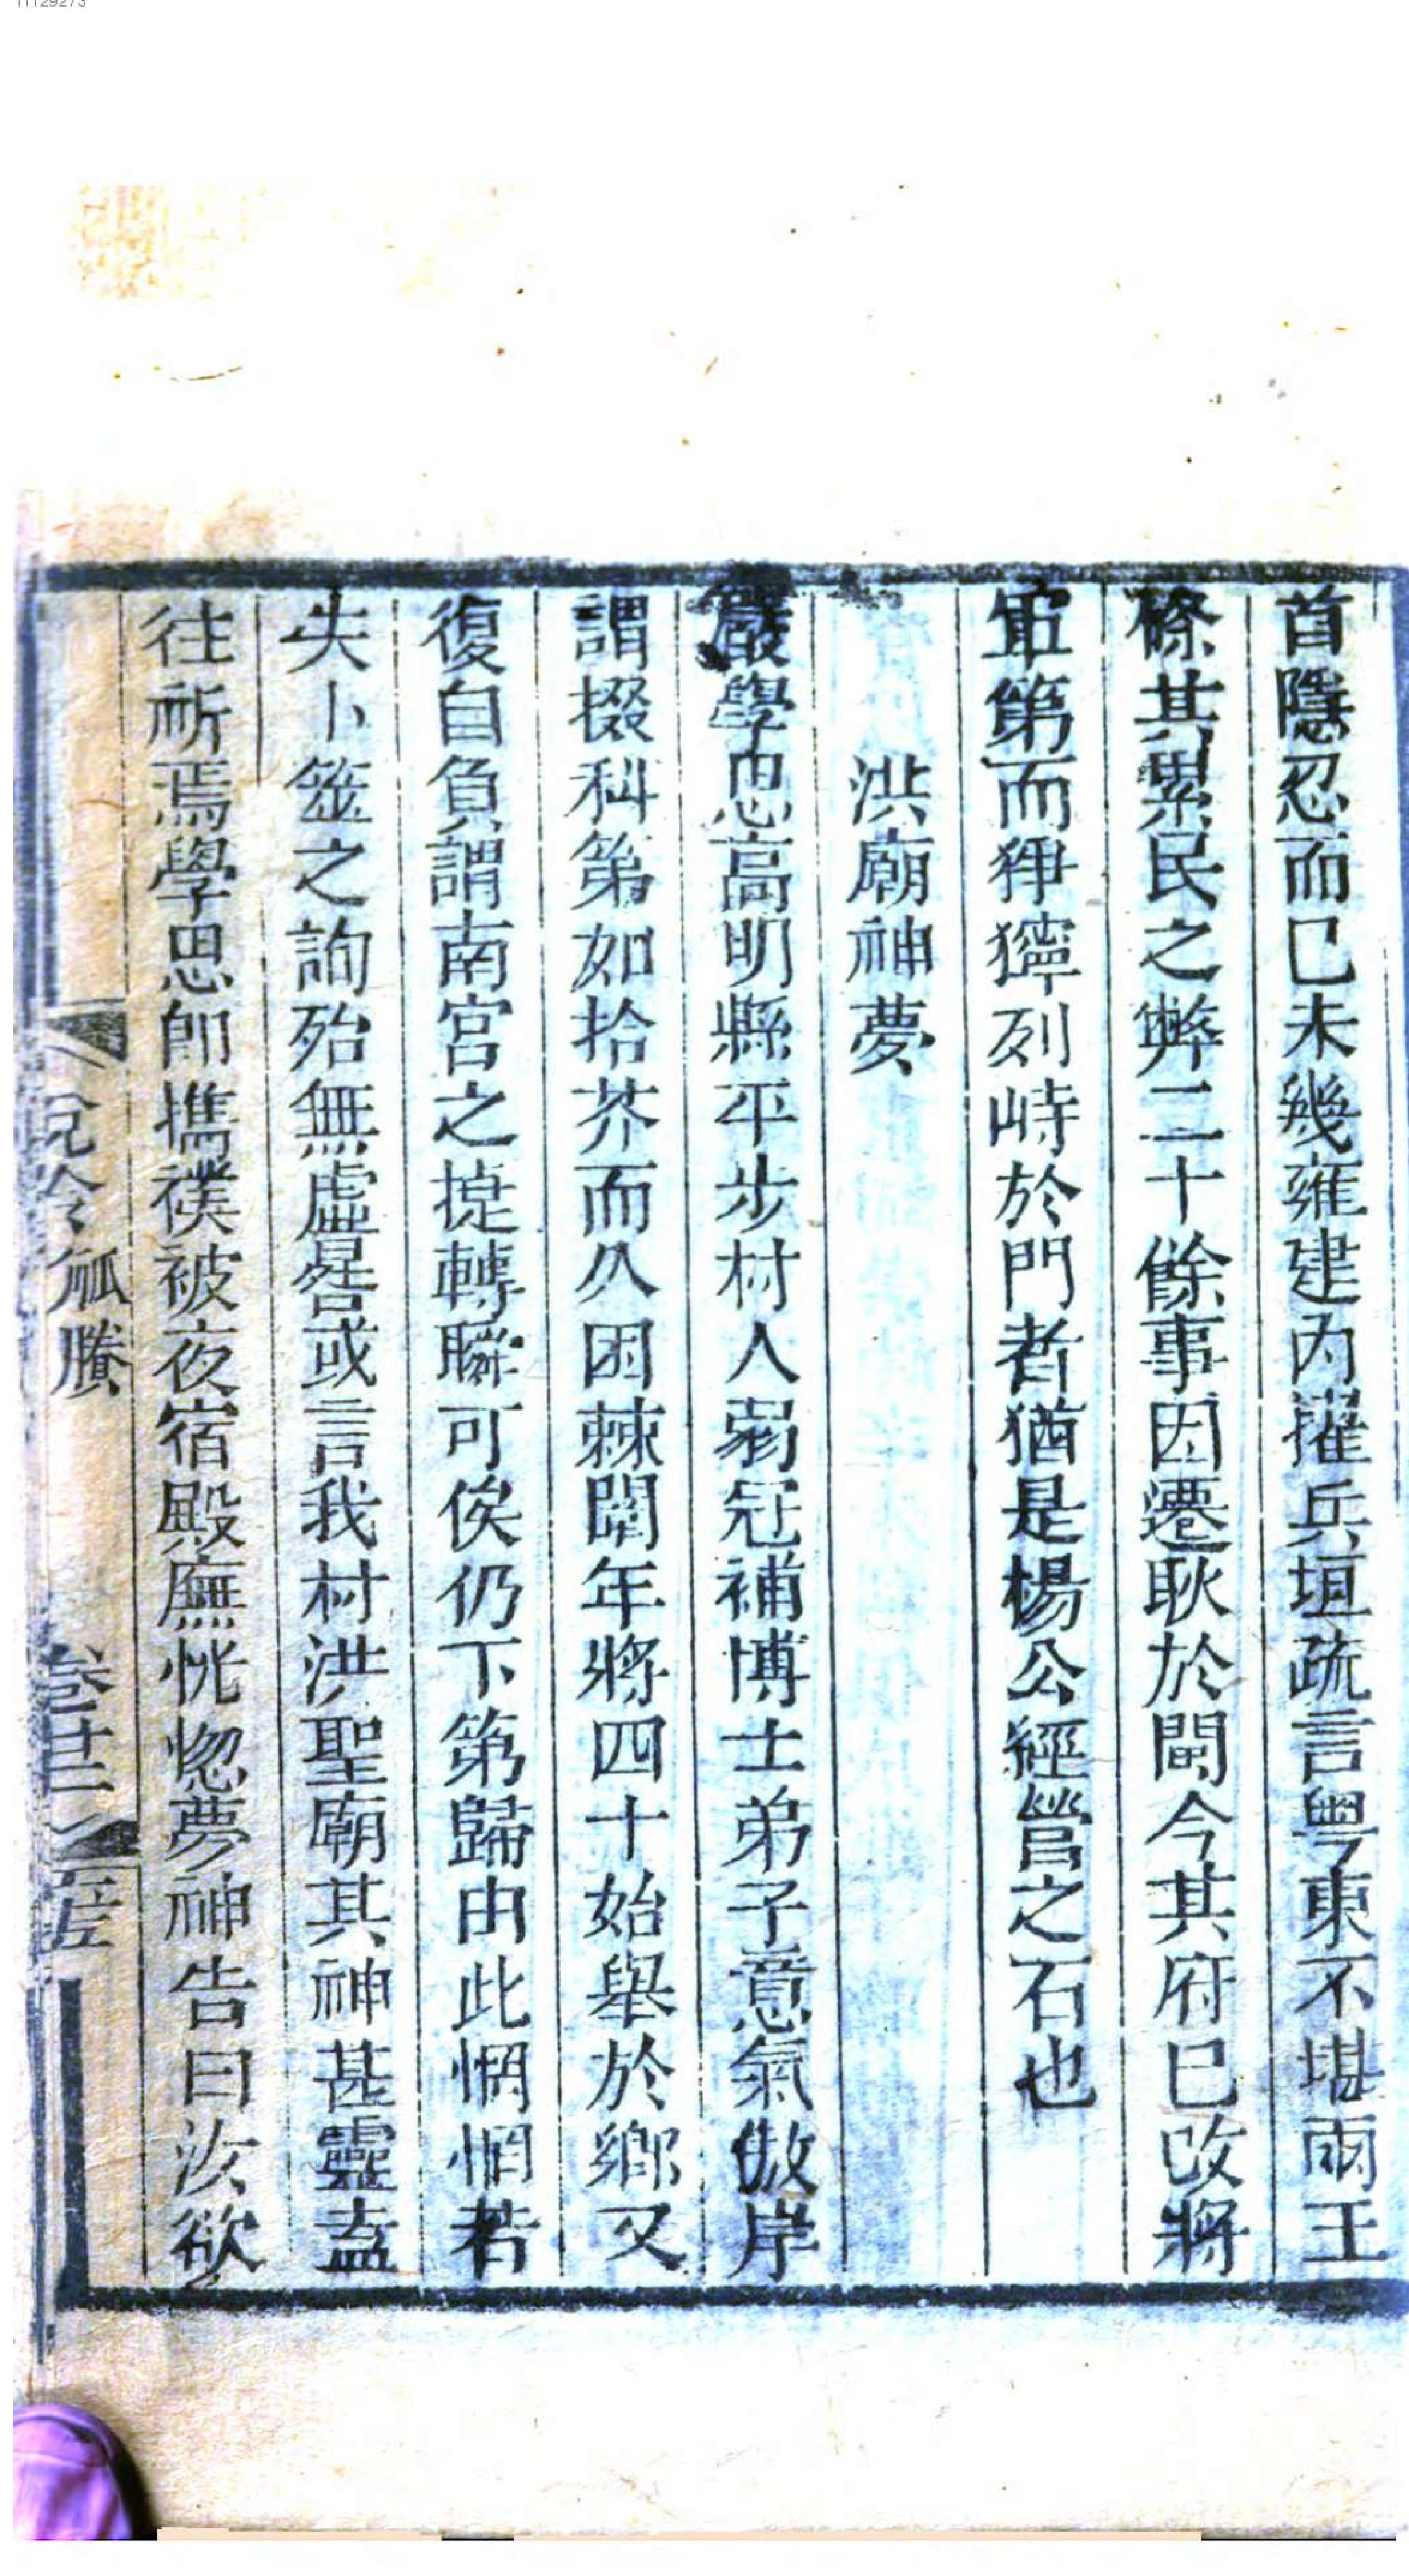 首隱忍而已未幾雍建内擢兵垣疏言粵東不堪兩王
條其累民之弊二十餘事因遷耿於閩今其府已改將
軍第而猙獰列峙於門者猶是楊公經營之石也
洪廟神夢
嚴學思高明縣平步村人弱冠補博士弟子意氣傲岸
謂掇科第如拾芥而久困棘闈年將四十始舉於鄉又
復自負謂南宮之捷轉瞬可俟仍下第歸由此惘惘若
失卜筮之詢殆無虛晷或言我村洪聖廟其神甚靈盍
往祈焉學思卽攜襆被夜宿殿廡恍惚夢神告曰汝欲
說鈴 觚賸
卷廿二